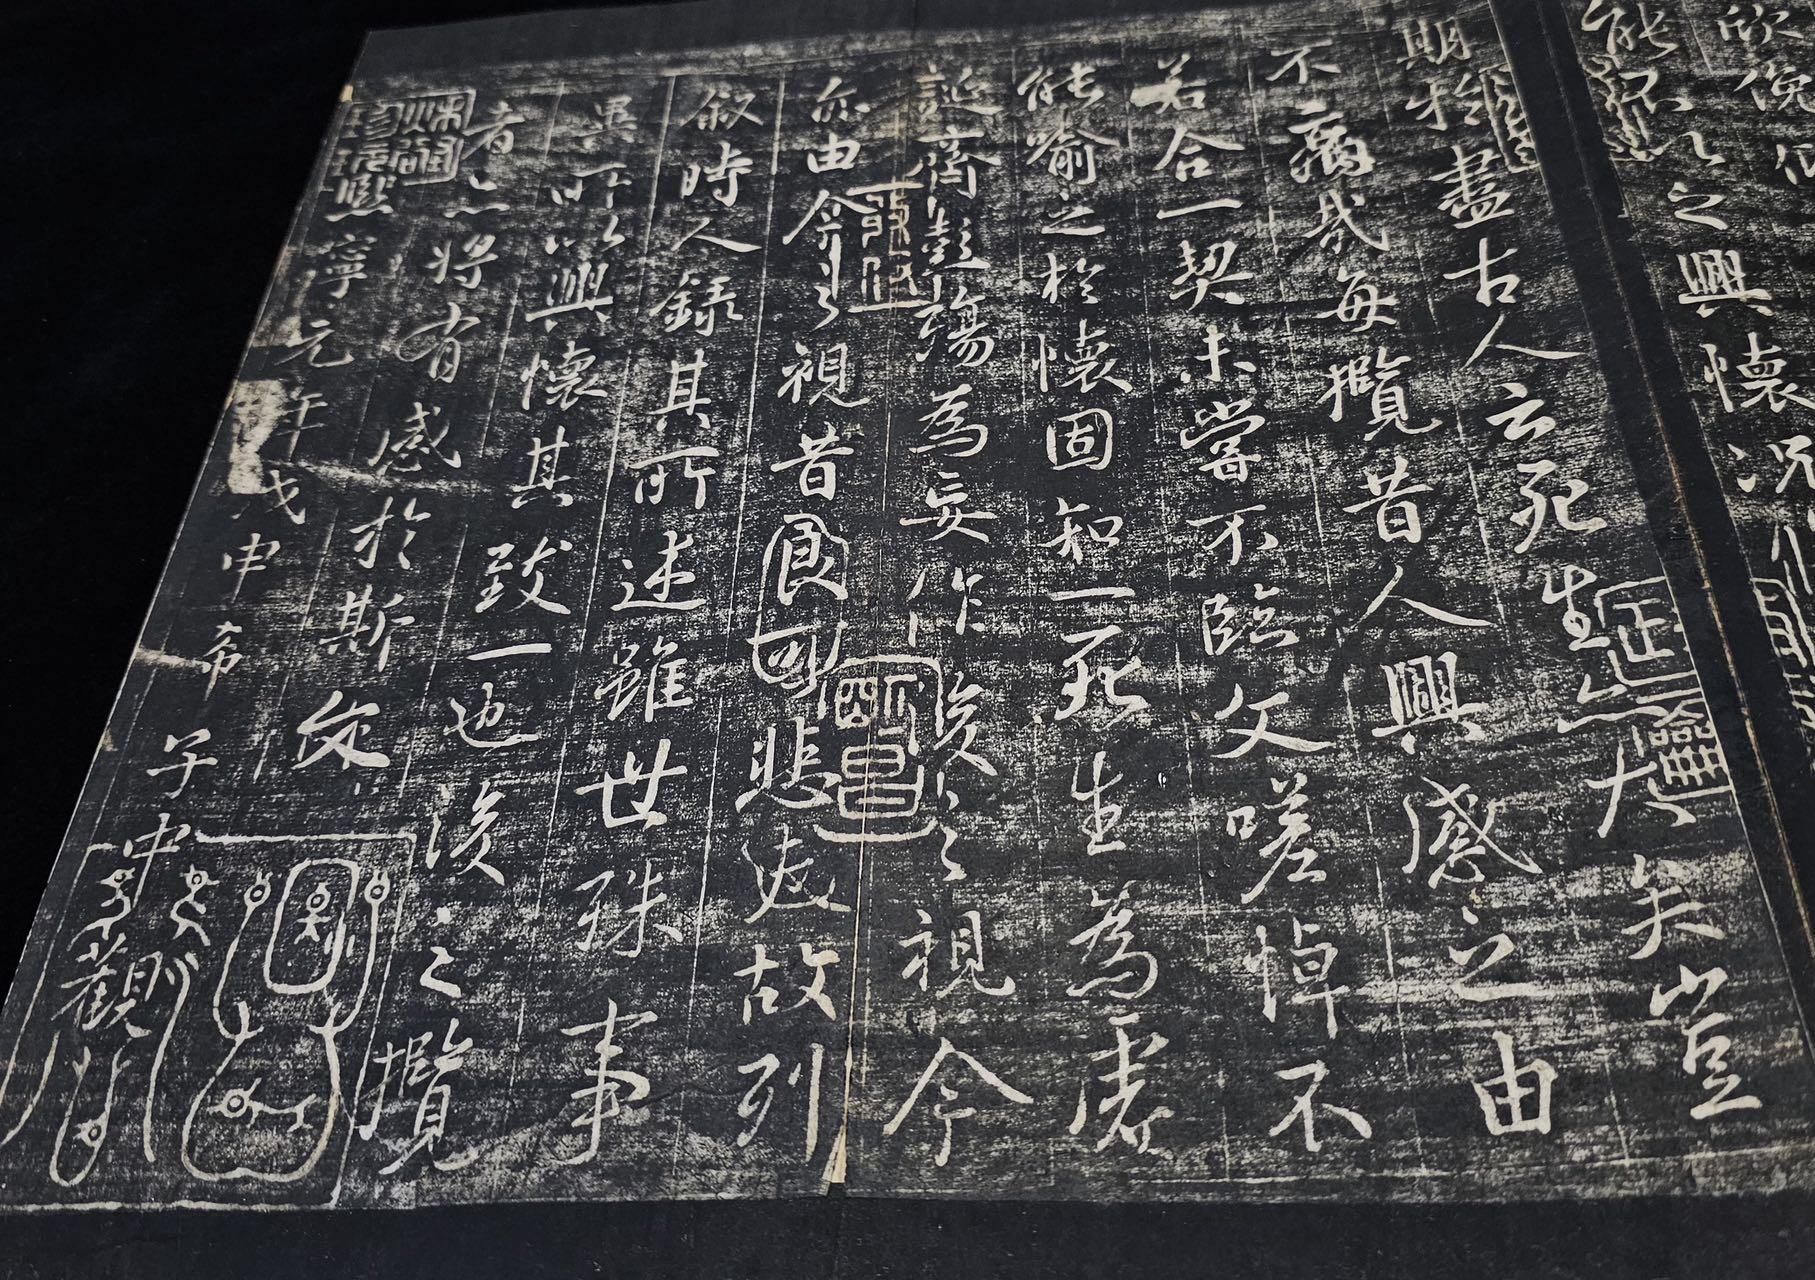 欣俛仰
能不以之興懷況
期於盡古人云死生亦大矣豈
不痛哉每攬昔人興感之由
若合一契未嘗不臨文嗟悼不
能喻之於懷固知一死生為虛
誕齊彭殤為妄作後之視今
亦由今之視昔良可悲夫故列
叙時人錄其所述雖世殊事
異所以興懷其致一也後之攬
者亦將有感於斯文
熙寧元年戊申希子中觀